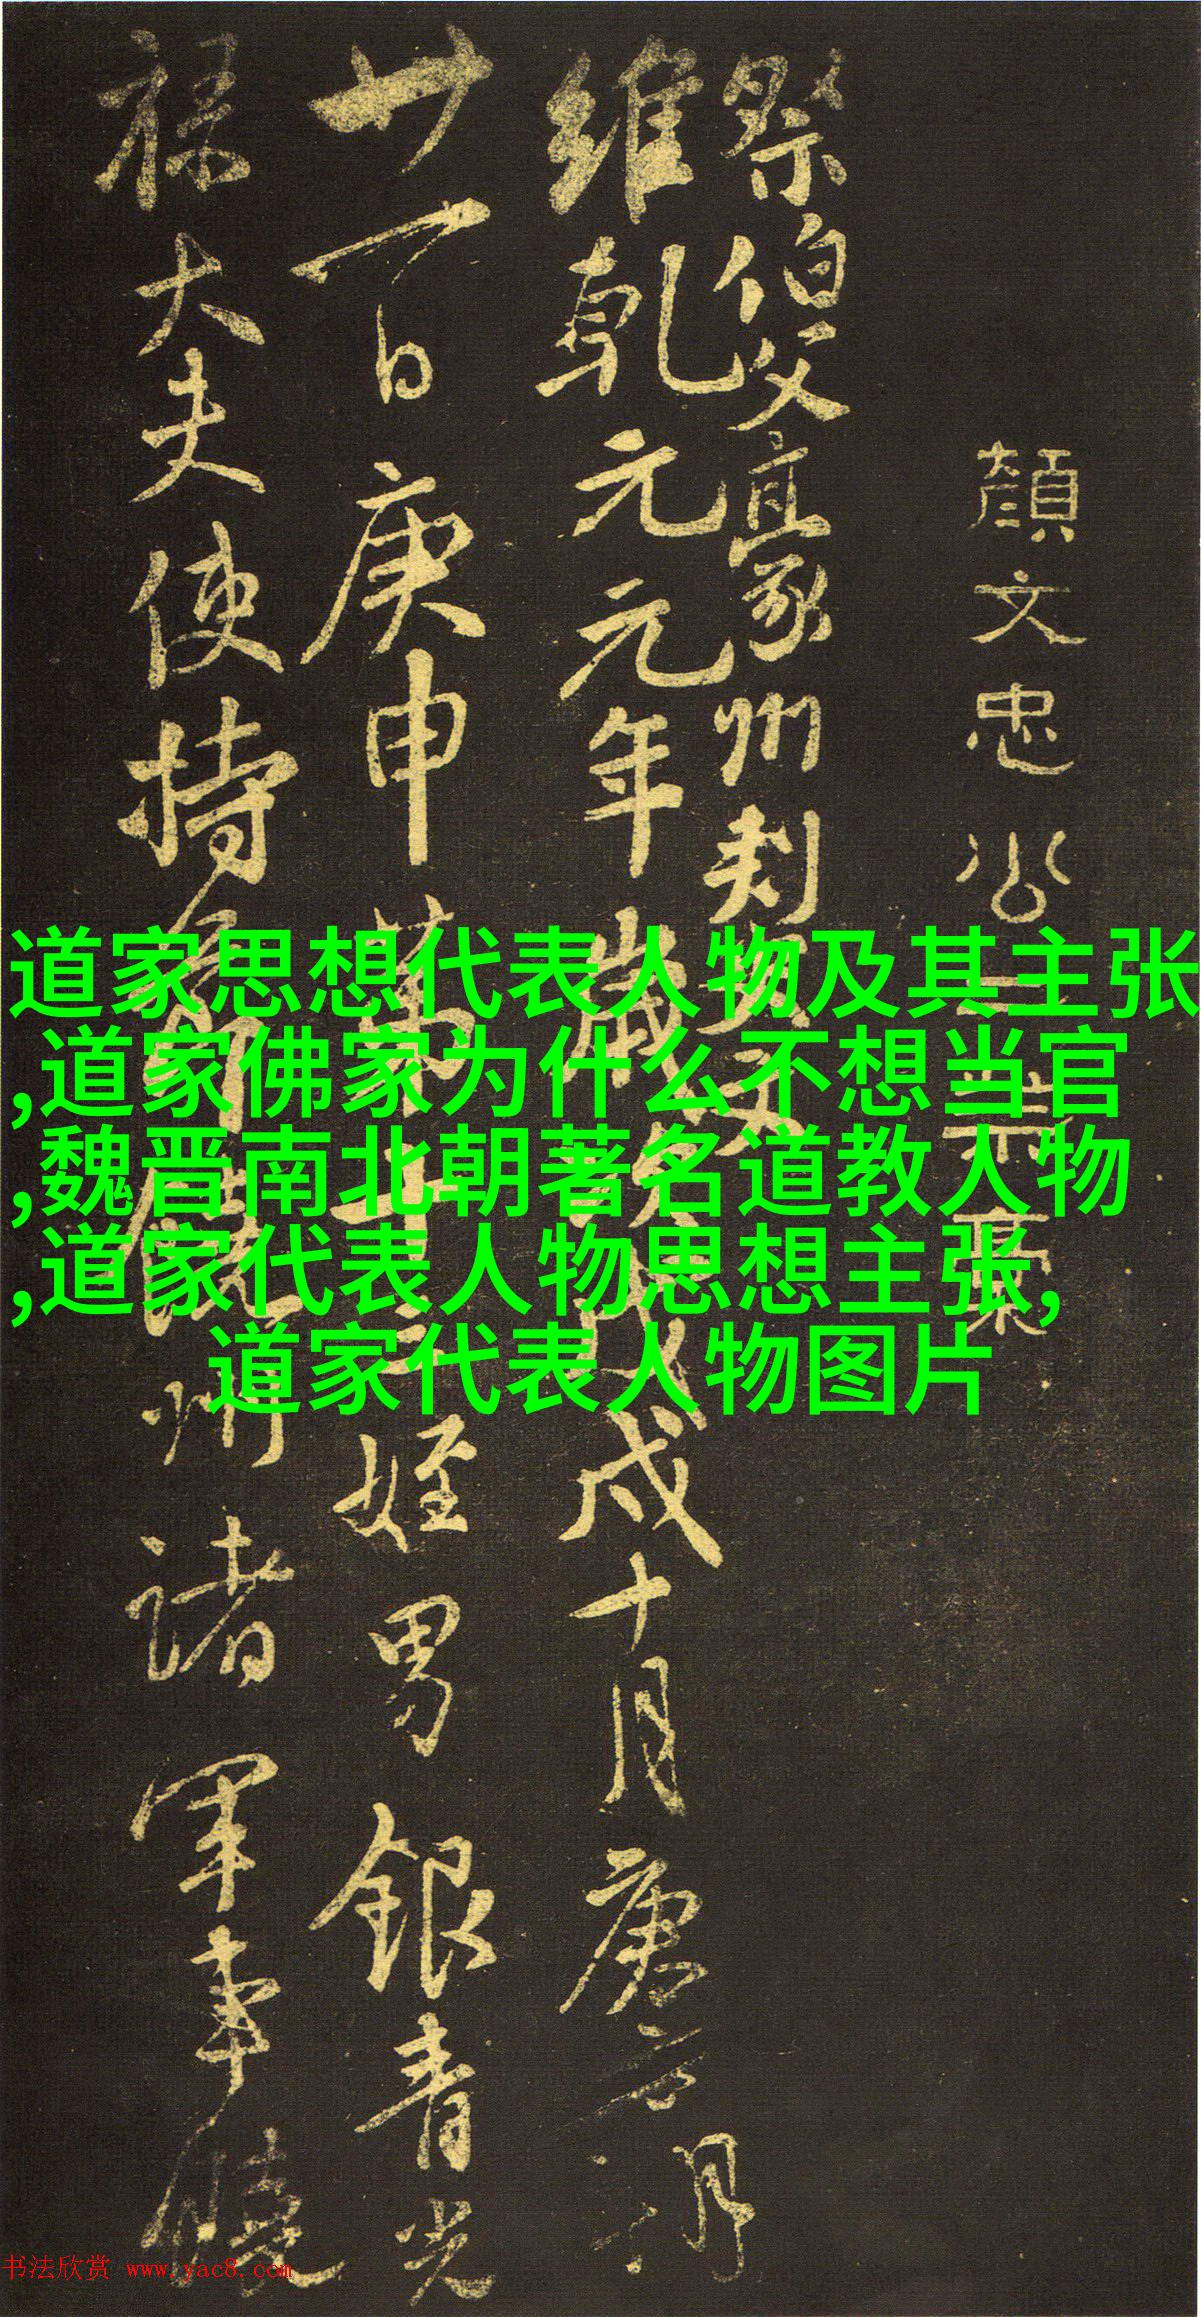 顏文忠公三祭稾
祭伯父豪州刺史文
維乾元元年歲次戊戌十月庚子朔
廿一日庚申第十三姪男銀青光
祿大夫使持節饒州諸軍事饒
道家思想代表人物及其主张
,道家佛家为什么不想当官
,魏晋南北朝著名道教人物
,道家代表人物思想主张,
道家代表人物图片
书法欣赏 www.yac8.com